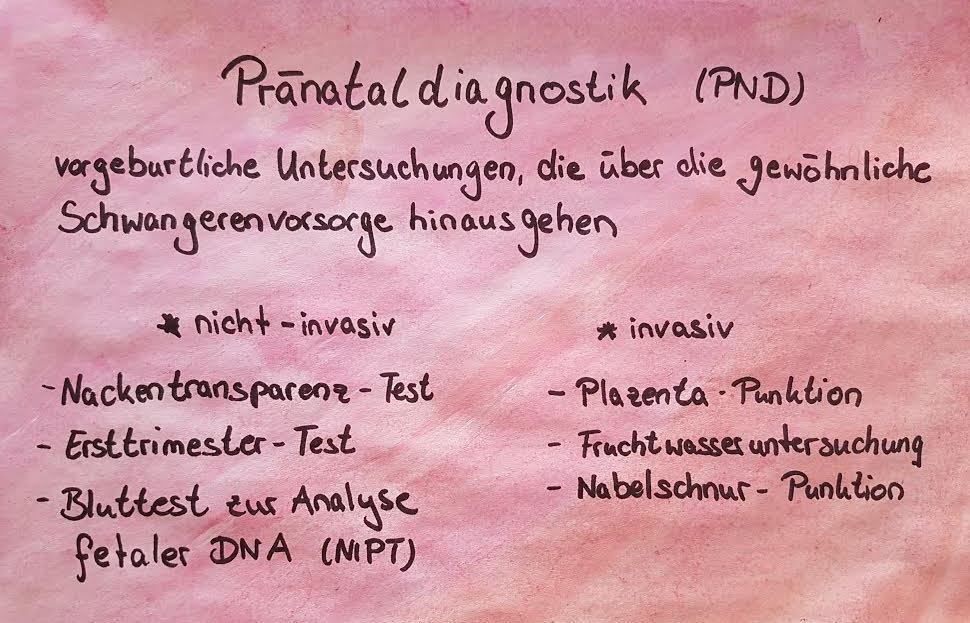 Pränataldiagnostik (PND)
vorgeburtliche Untersuchungen, die über die gewöhnliche
Schwangerenvorsorge hinausgehen
* nicht-invasiv
- Nackentransparenz - Test
- Ersttrimester - Test
- Bluttest zur Analyse
fetaler DNA (NIPT)
* invasiv
- Plazenta - Punktion
- Fruchtwasseruntersuchung
- Nabelschnur - Punktion